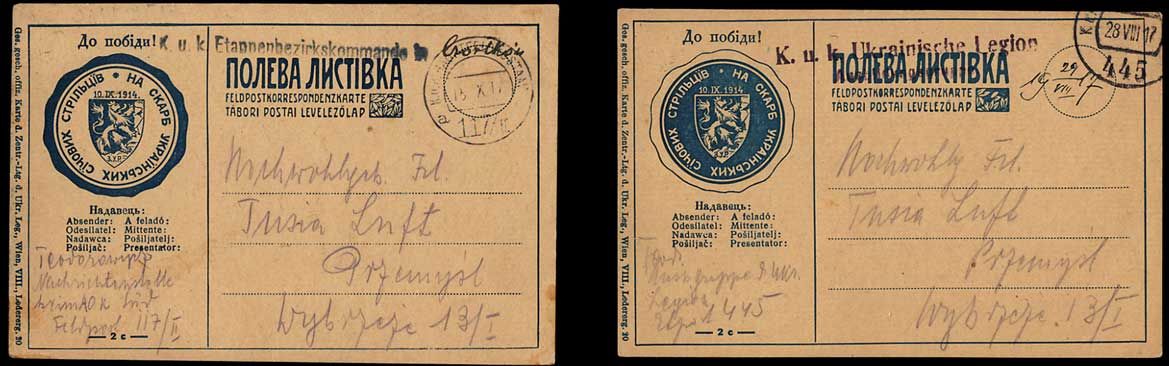 Ges. gesch. offiz. Karte d. Zentr.-Ltg. d. Ukr. Leg., Wien, VIII., Ledererg. 20
До побіди!
K. u. k. Etappenbezirkskommando in
ПОЛЕВА ЛИСТІВКА
FELDPOSTKORRESPONDENZKARTE
TÁBORI POSTAI LEVELEZŐLAP
НА СКАРБ УКРАЇНСЬКИХ СІЧОВИХ СТРІЛЬЦІВ
10. IX. 1914.
З.У.Р.
117/II
Надавець:
Absender: A feladó:
Odesílatel: Mittente:
Nadawca: Pošiljatelj:
Pošiljač: Presentator:
Feldpost 117/II
— 2 c —
Frl.
Tusia Luft
Przemyśl
Wybrzeże 13/I
Ges. gesch. offiz. Karte d. Zentr.-Ltg. d. Ukr. Leg., Wien, VIII., Ledererg. 20
До побіди!
K. u. k. Ukrainische Legion
ПОЛЕВА ЛИСТІВКА
FELDPOSTKORRESPONDENZKARTE
TÁBORI POSTAI LEVELEZŐLAP
28 VIII 17
445
19 29/VIII 17
НА СКАРБ УКРАЇНСЬКИХ СІЧОВИХ СТРІЛЬЦІВ
10. IX. 1914.
З.У.Р.
Надавець:
Absender: A feladó:
Odesílatel: Mittente:
Nadawca: Pošiljatelj:
Pošiljač: Presentator:
Ukr.
Legion
445
— 2 c —
Frl.
Tusia Luft
Przemyśl
Wybrzeże 13/I